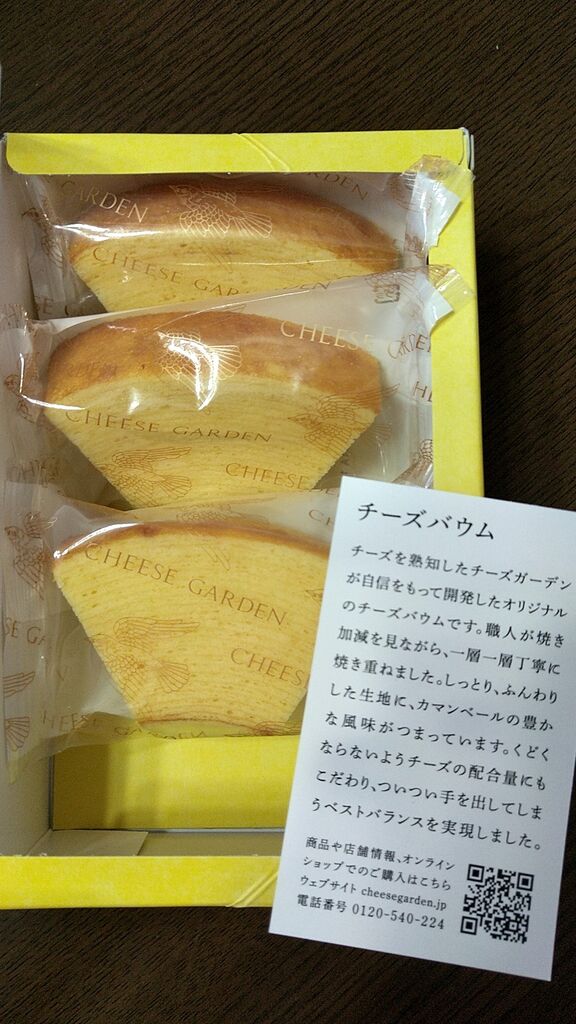 GARDEN
CHEESE GARDEN
CHEESE
CHEESE GARDEN
CHEESE
CHEESE GARDEN
CHEESE
チーズバウム
チーズを熟知したチーズガーデン
が自信をもって開発したオリジナル
のチーズバウムです。職人が焼き
加減を見ながら、一層一層丁寧に
焼き重ねました。しっとり、ふんわり
した生地に、カマンベールの豊か
な風味がつまっています。くどく
ならないようチーズの配合量にも
こだわり、ついつい手を出してしま
うベストバランスを実現しました。
商品や店舗情報、オンライン
ショップでのご購入はこちら
ウェブサイト cheesegarden.jp
電話番号 0120-540-224